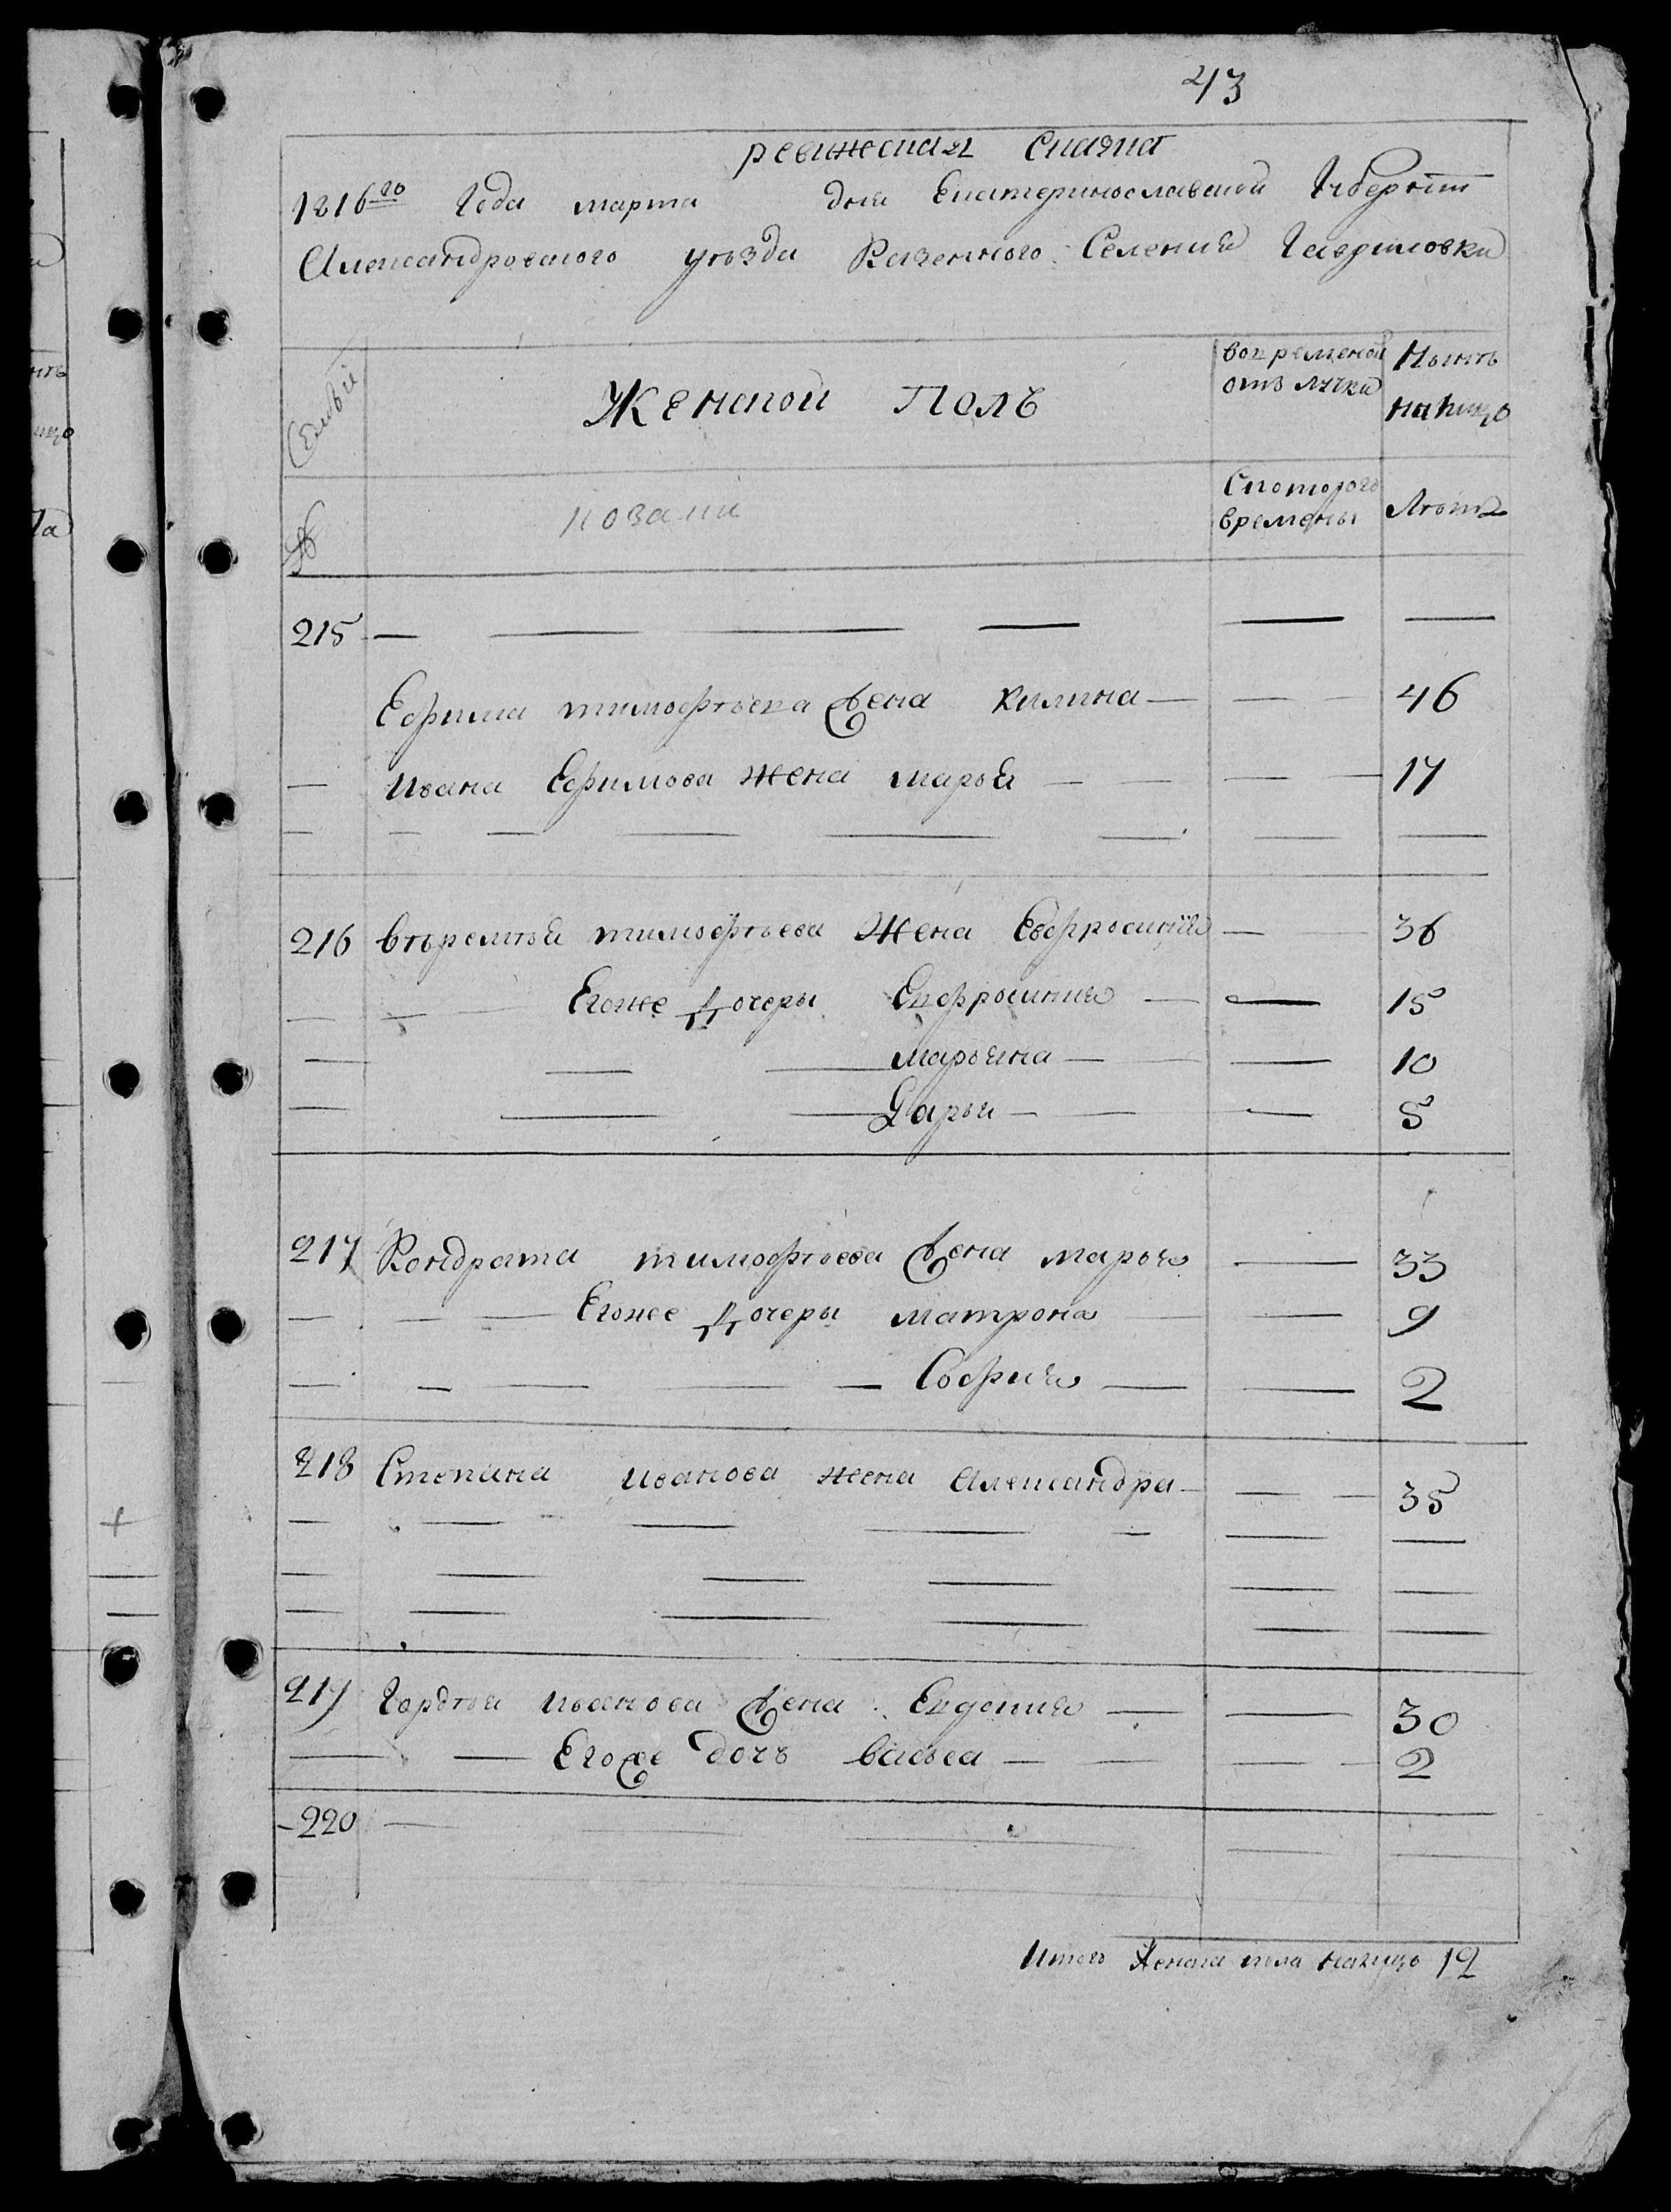 43
ревижская Сказка
1816го Года марта дня Екатеринославской Губернiи
Александровского уѣзда Казенного Селения Гавриловки
Семьи
Женской Полъ
вовременой
отълучки
Нынѣ
налицо
№
Скоторого
времены
Лѣта
215
Ефима тимофѣева жена килина 46
ивана Ефимова жена марья 17
216 ... тимофѣева жена Евфросинiя 36
Егоже дочеры Евфросиния 15
марьяна 10
Дарья 5
217 Кондрата тимофѣева жена марья 33
Егоже дочеры матрона 9
София 2
218 Степана иванова жена александра 35
219 Гордѣя иванова жена Евдокия 30
Егоже дочь васса 2
220
Итого женска пола налицо 12